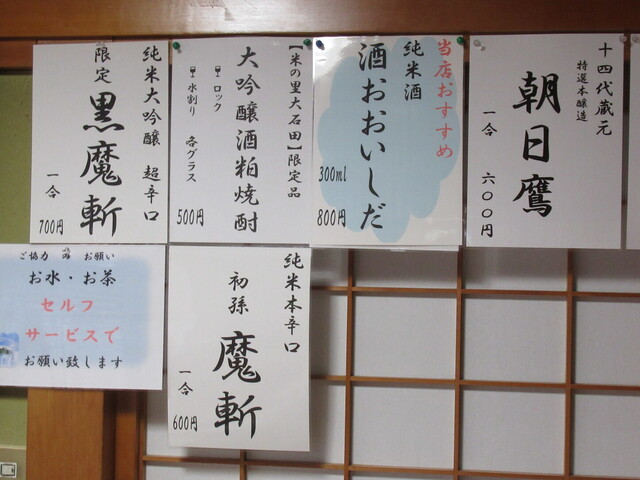 十四代蔵元
特選本醸造
朝日鷹
一合 六〇〇円
当店おすすめ
純米酒
酒おおいしだ
300ml
800円
【米の里大石田】限定品
大吟醸酒粕焼酎
ロック
水割り 各グラス
500円
純米大吟醸 超辛口
限定 黒魔斬
一合
700円
純米本辛口
初孫 魔斬
一合
600円
ご協力 お願い
お水・お茶
セルフ
サービスで
お願い致します